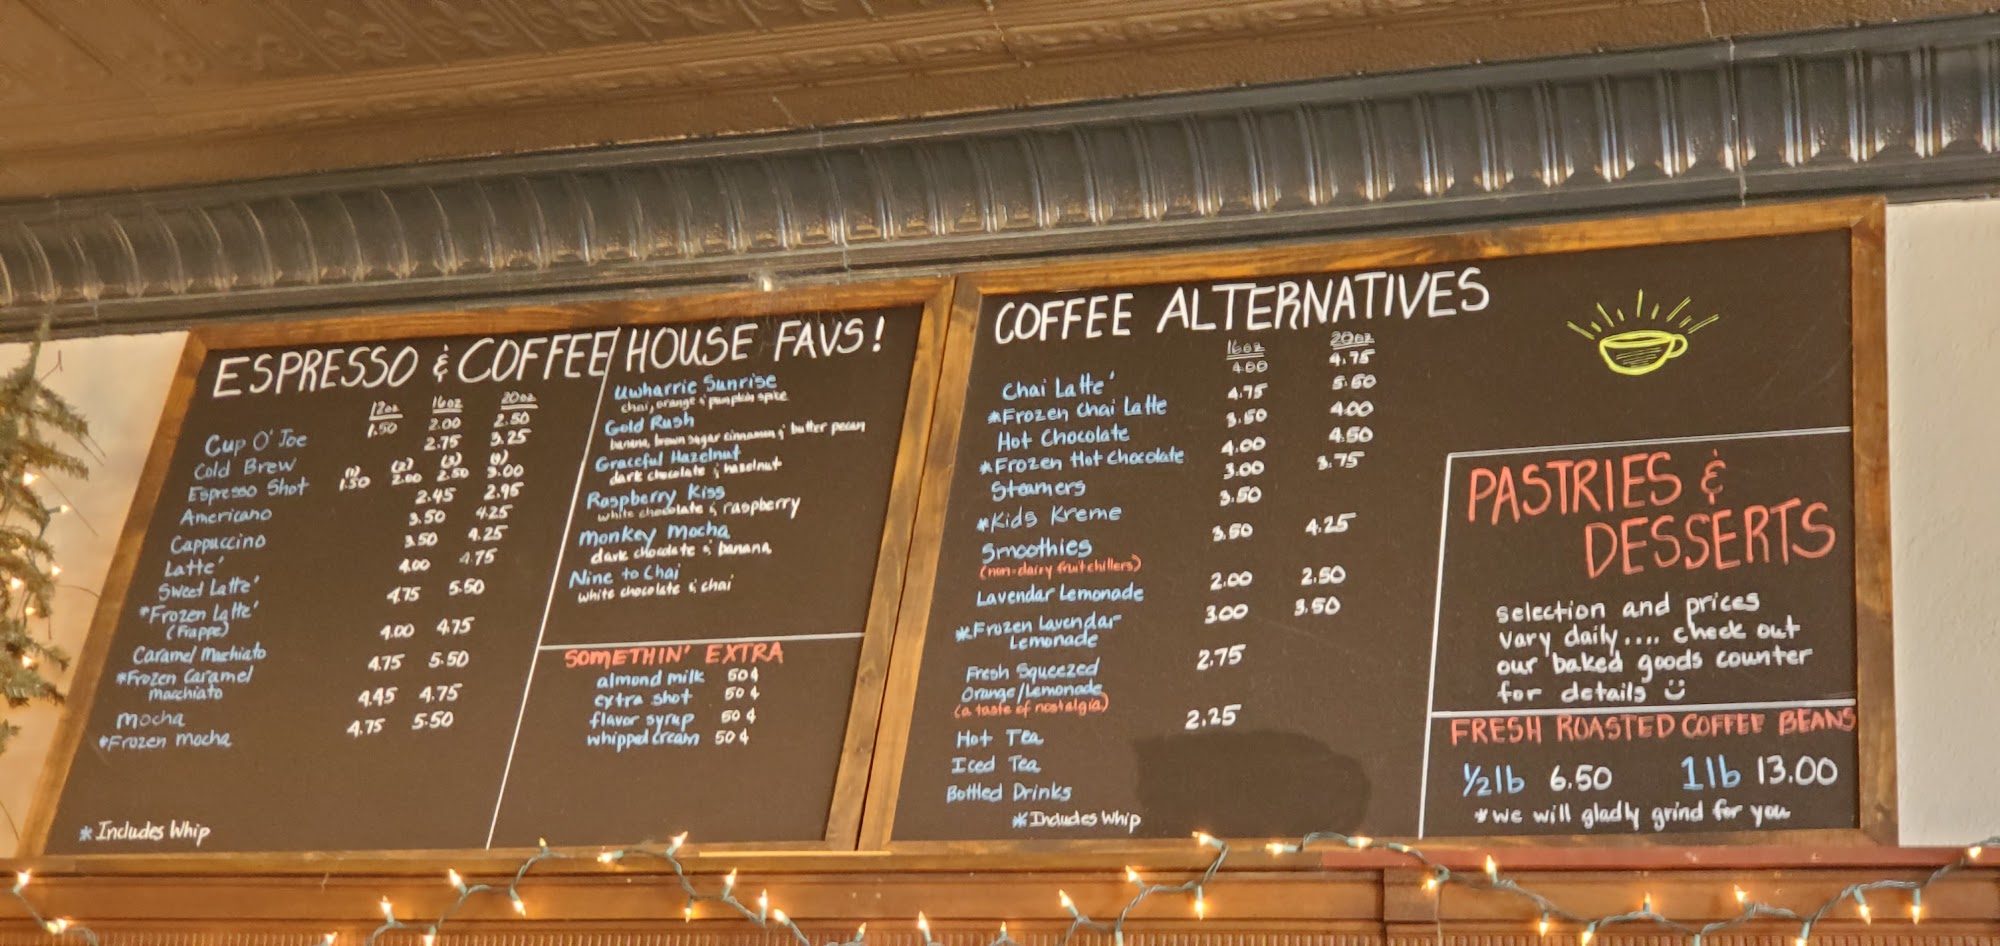 ESPRESSO & COFFEE HOUSE FAVS!
12oz 16oz 20oz
Cup O' Joe 1.50 2.00 2.50
Cold Brew 2.75 3.25
(1) (2) (3) (4)
Espresso Shot 1.50 2.00 2.50 3.00
Americano 2.45 2.95
Cappuccino 3.50 4.25
Latte' 3.50 4.25
Sweet Latte' 4.00 4.75
*Frozen Latte' 4.75 5.50
(Frappe)
Caramel Machiato 4.00 4.75
*Frozen Caramel 4.75 5.50
macchiato
Mocha 4.45 4.75
*Frozen Mocha 4.75 5.50
*Includes Whip
Uwharrie Sunrise
chai, orange & pumpkin spice
Gold Rush
banana, brown sugar cinnamon & butter pecan
Graceful Hazelnut
dark chocolate & hazelnut
Raspberry Kiss
white chocolate & raspberry
Monkey Mocha
dark chocolate & banana
Nine to Chai
white chocolate & chai
SOMETHIN' EXTRA
almond milk 50¢
extra shot 50¢
flavor syrup 50¢
whipped cream 50¢
COFFEE ALTERNATIVES
16oz 20oz
Chai Latte' 4.00 4.75
*Frozen Chai Latte 4.75 5.50
Hot Chocolate 3.50 4.00
*Frozen Hot Chocolate 4.00 4.50
Steamers 3.00 3.75
*Kids Kreme 3.50
Smoothies 3.50 4.25
(non-dairy fruit chillers)
Lavendar Lemonade 2.00 2.50
*Frozen Lavendar 3.00 3.50
Lemonade
Fresh Squeezed 2.75
Orange/Lemonade
(a taste of nostalgia)
Hot Tea 2.25
Iced Tea
Bottled Drinks
*Includes Whip
PASTRIES &
DESSERTS
selection and prices
vary daily.... check out
our baked goods counter
for details
FRESH ROASTED COFFEE BEANS
1/2lb 6.50 1lb 13.00
*we will gladly grind for you